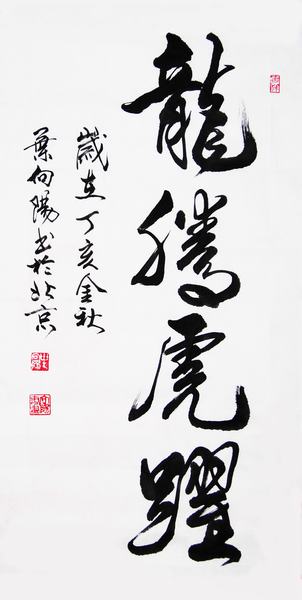 龍騰虎躍
歲在丁亥金秋
葉向陽書於北京